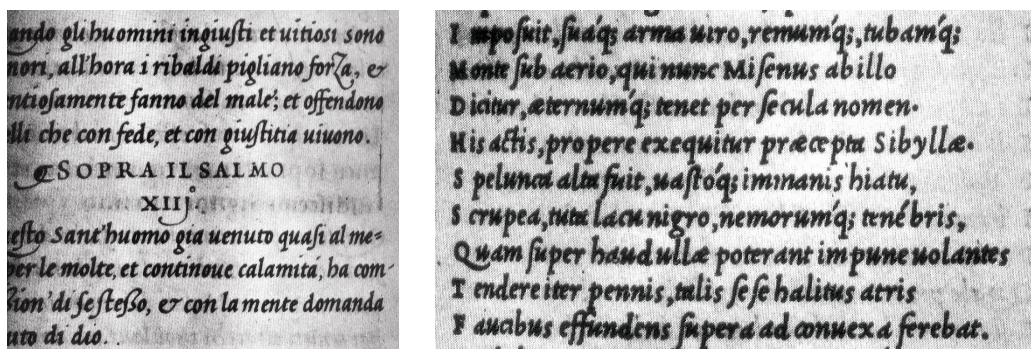 ando gli huomini ingiusti et uitiosi sono
nori, all'hora i ribaldi pigliano forza, &
ntiosamente fanno del male; et offendono
lli che con fede, et con giustitia uiuono.
SOPRA IL SALMO
XIIJ.
esto Sant'huomo gia uenuto quasi al me=
per le molte, et continoue calamità, ha com-
sion' di se stesso, & con la mente domanda
uto di dio.
Imposuit, suáq; arma uiro, remumq́;, tubamq́;
Monte sub aerio, qui nunc Misenus ab illo
Dicitur, æternumq́; tenet per secula nomen.
His actis, propere exequitur præcepta Sibyllæ.
Spelunca alta fuit, uastóq; immanis hiatu,
Scrupea, tuta lacu nigro, nemorumq́; tenébris,
Quam super haud ullæ poterant impune uolantes
Tendere iter pennis, talis sese halitus atris
Faucibus effundens supera ad conuexa ferebat.